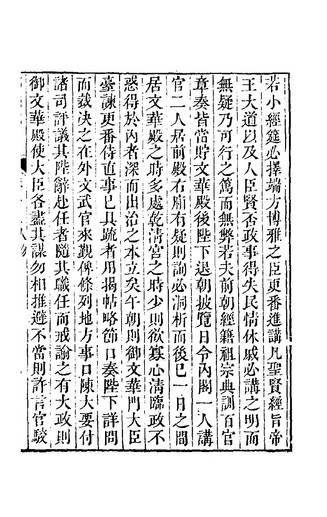 若小經筵必擇端方博雅之臣更番進講凡聖賢經旨帝
王大道以及人臣賢否政事得失民情休戚必講之明而
無疑乃可行之篤而無弊若夫前朝經籍祖宗典訓百官
章奏皆當貯文華殿後陛下退朝披覽日令內閣一人講
官二人居前殿右廂有疑則詢必洞析而後已一日之間
居文華殿之時多處乾清宮之時少則欲寡心清臨政不
惑得於內者深而出治之本立矣午朝則御文華門大臣
臺諫更番侍直事已具疏者用揭帖略節口奏陛下詳問
而裁決之在外文武官來覲俾條列地方事口陳大要付
諸司評議其陛辭赴任者隨其職任而戒諭之有大政則
御文華殿使大臣各盡其謀勿相推避不當則許言官駁